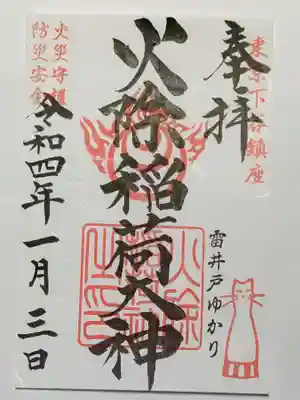 東京下谷鎮座
奉拝
雷井戸ゆかり
火除稲荷大神
火除
之印
火災守護
防災安全
令和四年一月三日